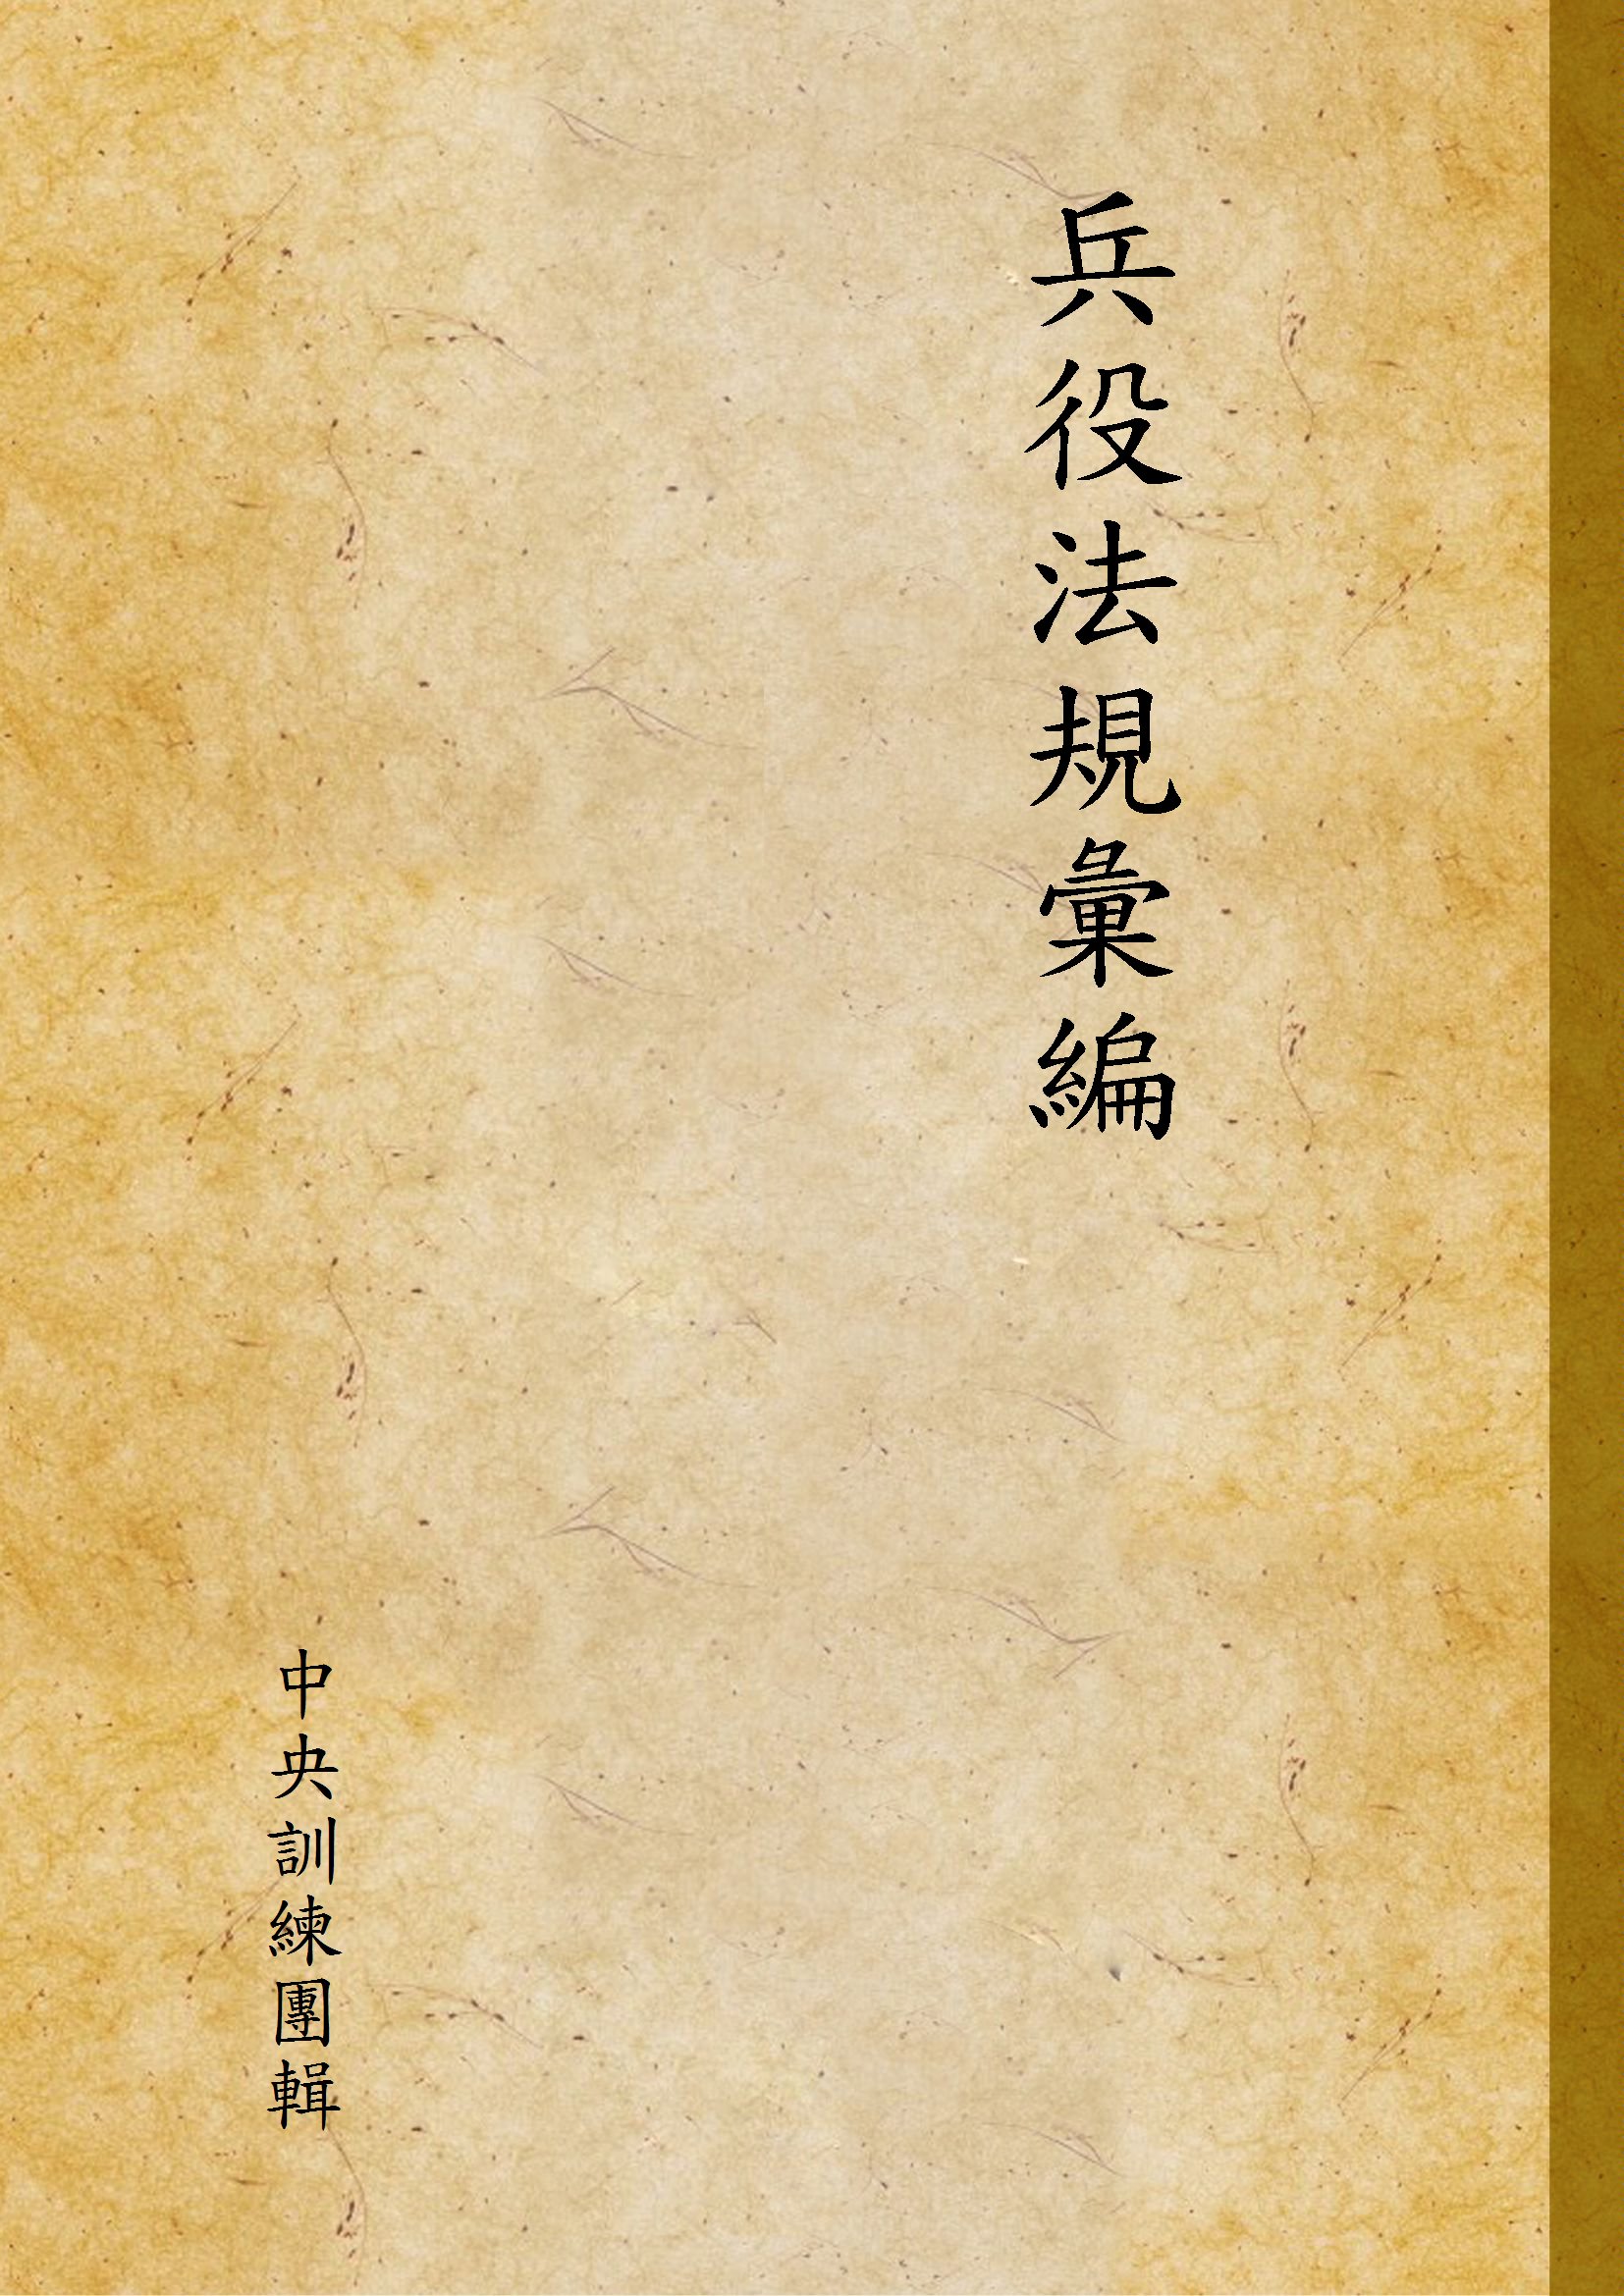 兵役法規彙編
中央訓練團輯